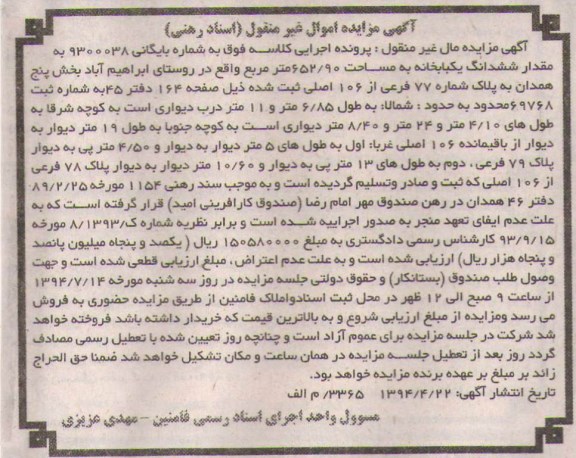 آگهی مزایده اموال غیر منقول (اسناد رهنی)
آگهی مزایده مال غیر منقول : پرونده اجرایی کلاسه فوق به شماره بایگانی ۹۳۰۰۰۳۸ به
مقدار ششدانگ یکبابخانه به مساحت ۶۵۲/۹۰متر مربع واقع در روستای ابراهیم آباد بخش پنج
همدان به پلاک شماره ۷۷ فرعی از ۱۰۶ اصلی ثبت شده ذیل صفحه ۱۶۴ دفتر ۴۵به شماره ثبت
۶۹۷۶۸محدود به حدود : شمالا: به طول ۶/۸۵ متر و ۱۱ متر درب دیواری است به کوچه شرقا به
طول های ۴/۱۰ متر و ۲۴ متر و ۸/۴۰ متر دیواری است به کوچه جنوبا به طول ۱۹ متر دیوار به
دیوار از باقیمانده ۱۰۶ اصلی غربا: اول به طول های ۵ متر دیوار به دیوار و ۴/۵۰ متر پی به دیوار
پلاک ۷۹ فرعی ، دوم به طول های ۱۳ متر پی به دیوار و ۱۰/۶۰ متر دیوار به دیوار پلاک ۷۸ فرعی
از ۱۰۶ اصلی که ثبت و صادر وتسلیم گردیده است و به موجب سند رهنی ۱۱۵۴ مورخه ۸۹/۲/۲۵
دفتر ۴۶ همدان در رهن صندوق مهر امام رضا (صندوق کارافرینی امید) قرار گرفته است که به
علت عدم ایفای تعهد منجر به صدور اجراییه شده است و برابر نظریه شماره ک/۸/۱۳۹۳ مورخه
۹۳/۹/۱۵ کارشناس رسمی دادگستری به مبلغ ۱۵۰۵۸۰۰۰۰ ریال ( یکصد و پنجاه میلیون پانصد
و پنجاه هزار ریال) ارزیابی شده است و به علت عدم اعتراض، مبلغ ارزیابی قطعی شده است و جهت
وصول طلب صندوق (بستانکار) و حقوق دولتی جلسه مزایده در روز سه شنبه مورخه ۱۳۹۴/۷/۱۴
از ساعت ۹ صبح الی ۱۲ ظهر در محل ثبت اسنادواملاک فامنین از طریق مزایده حضوری به فروش
می رسد ومزایده از مبلغ ارزیابی شروع و به بالاترین قیمت که خریدار داشته باشد فروخته خواهد
شد شرکت در جلسه مزایده برای عموم آزاد است و چنانچه روز تعیین شده با تعطیل رسمی مصادف
گردد روز بعد از تعطیل جلسه مزایده در همان ساعت و مکان تشکیل خواهد شد ضمنا حق الحراج
زائد بر مبلغ بر عهده برنده مزایده خواهد بود.
تاریخ انتشار آگهی: ۱۳۹۴/۴/۲۲ ۳۳۶۵/ م الف
مسوول واحد اجرای اسناد رسمی فامنین – مهدی عزیزی